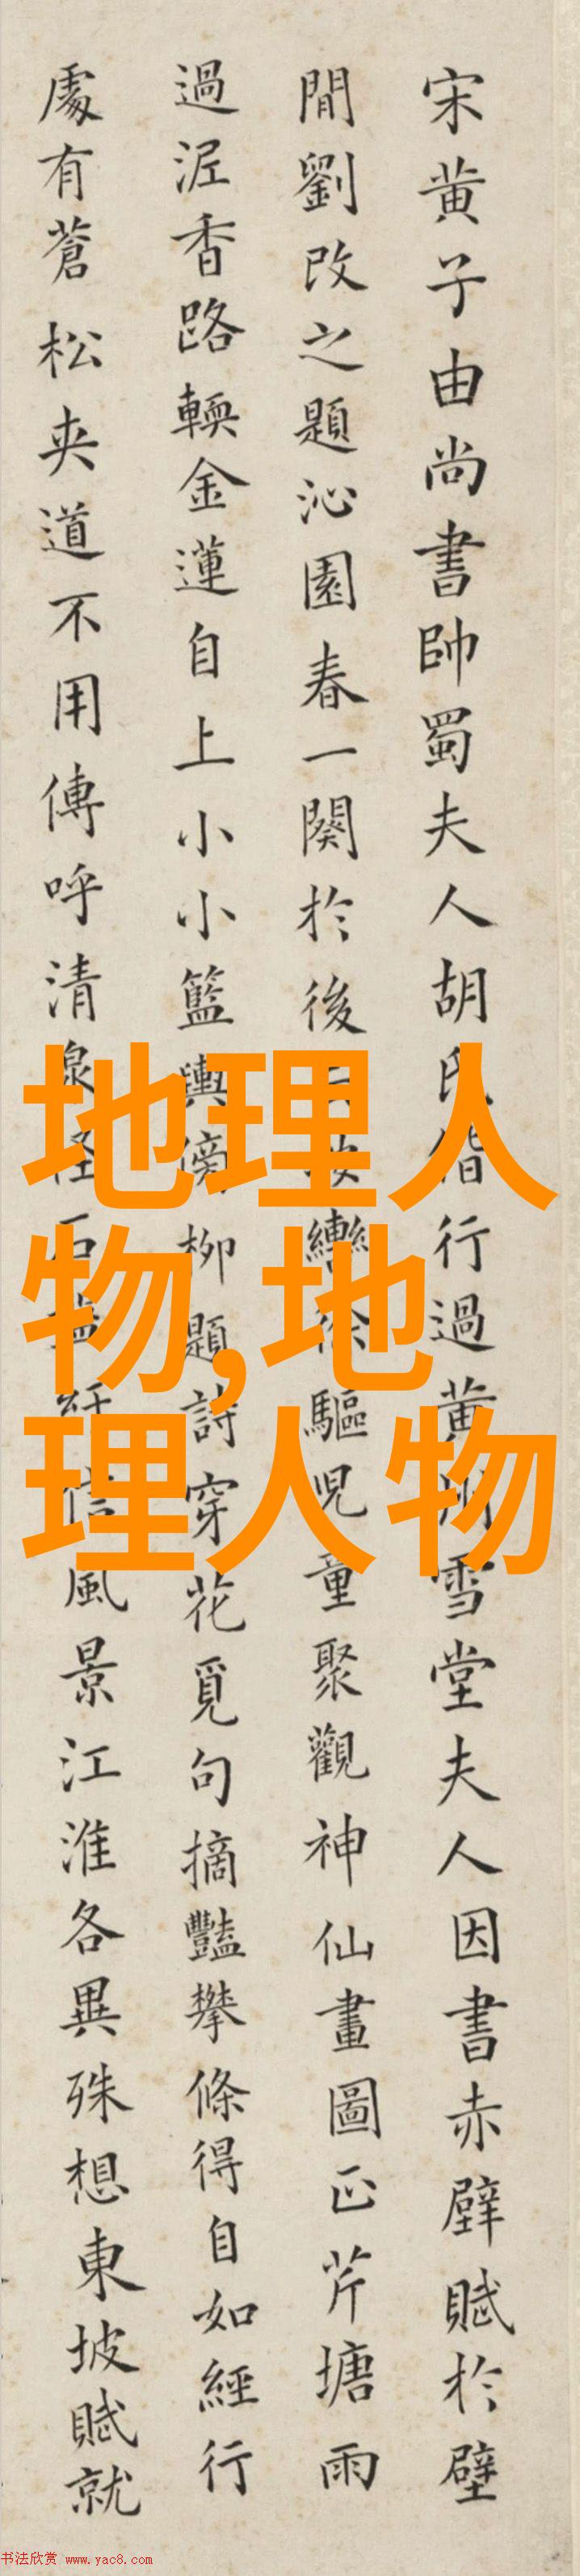 宋黄子由尚書帥蜀夫人胡氏偕行過黄州雪堂夫人因書赤壁賦於壁
間劉改之題沁園春一闋於後轡徐驅児童聚觀神仙畫圖正芹塘雨
過泥香路輭金蓮自上小小籃輿傍柳題詩穿花覓句摘豔攀條得自如經行
處有蒼松夾道不用傳呼清泉怪石盤紆信風景江淮各異殊想東坡賦就
地理人
物,地
理人物
书法欣赏 www.yac8.com